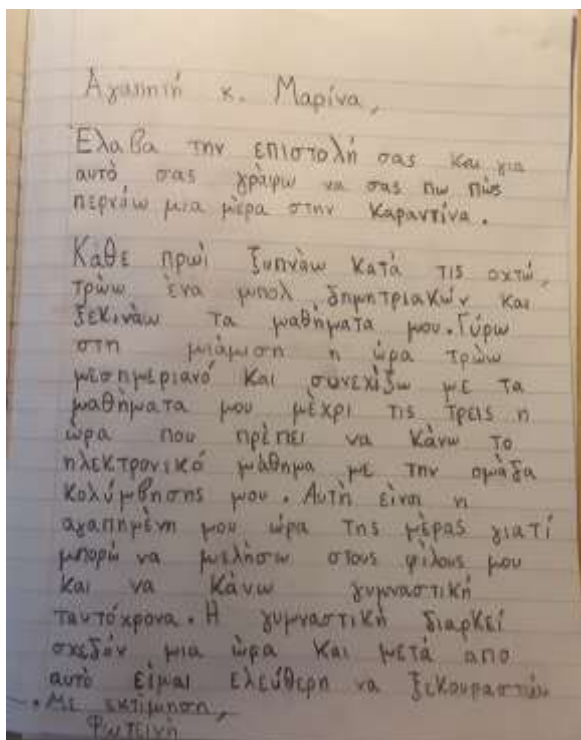 Αγαπητή κ. Μαρίνα,
Έλαβα την επιστολή σας και για
αυτό σας γράφω να σας πω πώς
περνάω μια μέρα στην καραντίνα.
Κάθε πρωί ξυπνάω κατά τις οχτώ,
τρώω ένα μπολ δημητριακών και
ξεκινάω τα μαθήματα μου. Γύρω
στη μιάμιση η ώρα τρώω
μεσημεριανό και συνεχίζω με τα
μαθήματα μου μέχρι τις τρεις η
ώρα που πρέπει να κάνω το
ηλεκτρονικό μάθημα με την ομάδα
κολύμβησης μου. Αυτή είναι η
αγαπημένη μου ώρα της μέρας γιατί
μπορώ να μιλήσω στους φίλους μου
και να κάνω γυμναστική
ταυτόχρονα. Η γυμναστική διαρκεί
σχεδόν μια ώρα και μετά απο
αυτό είμαι ελεύθερη να ξεκουραστώ
. Με εκτίμηση,
Φωτεινή